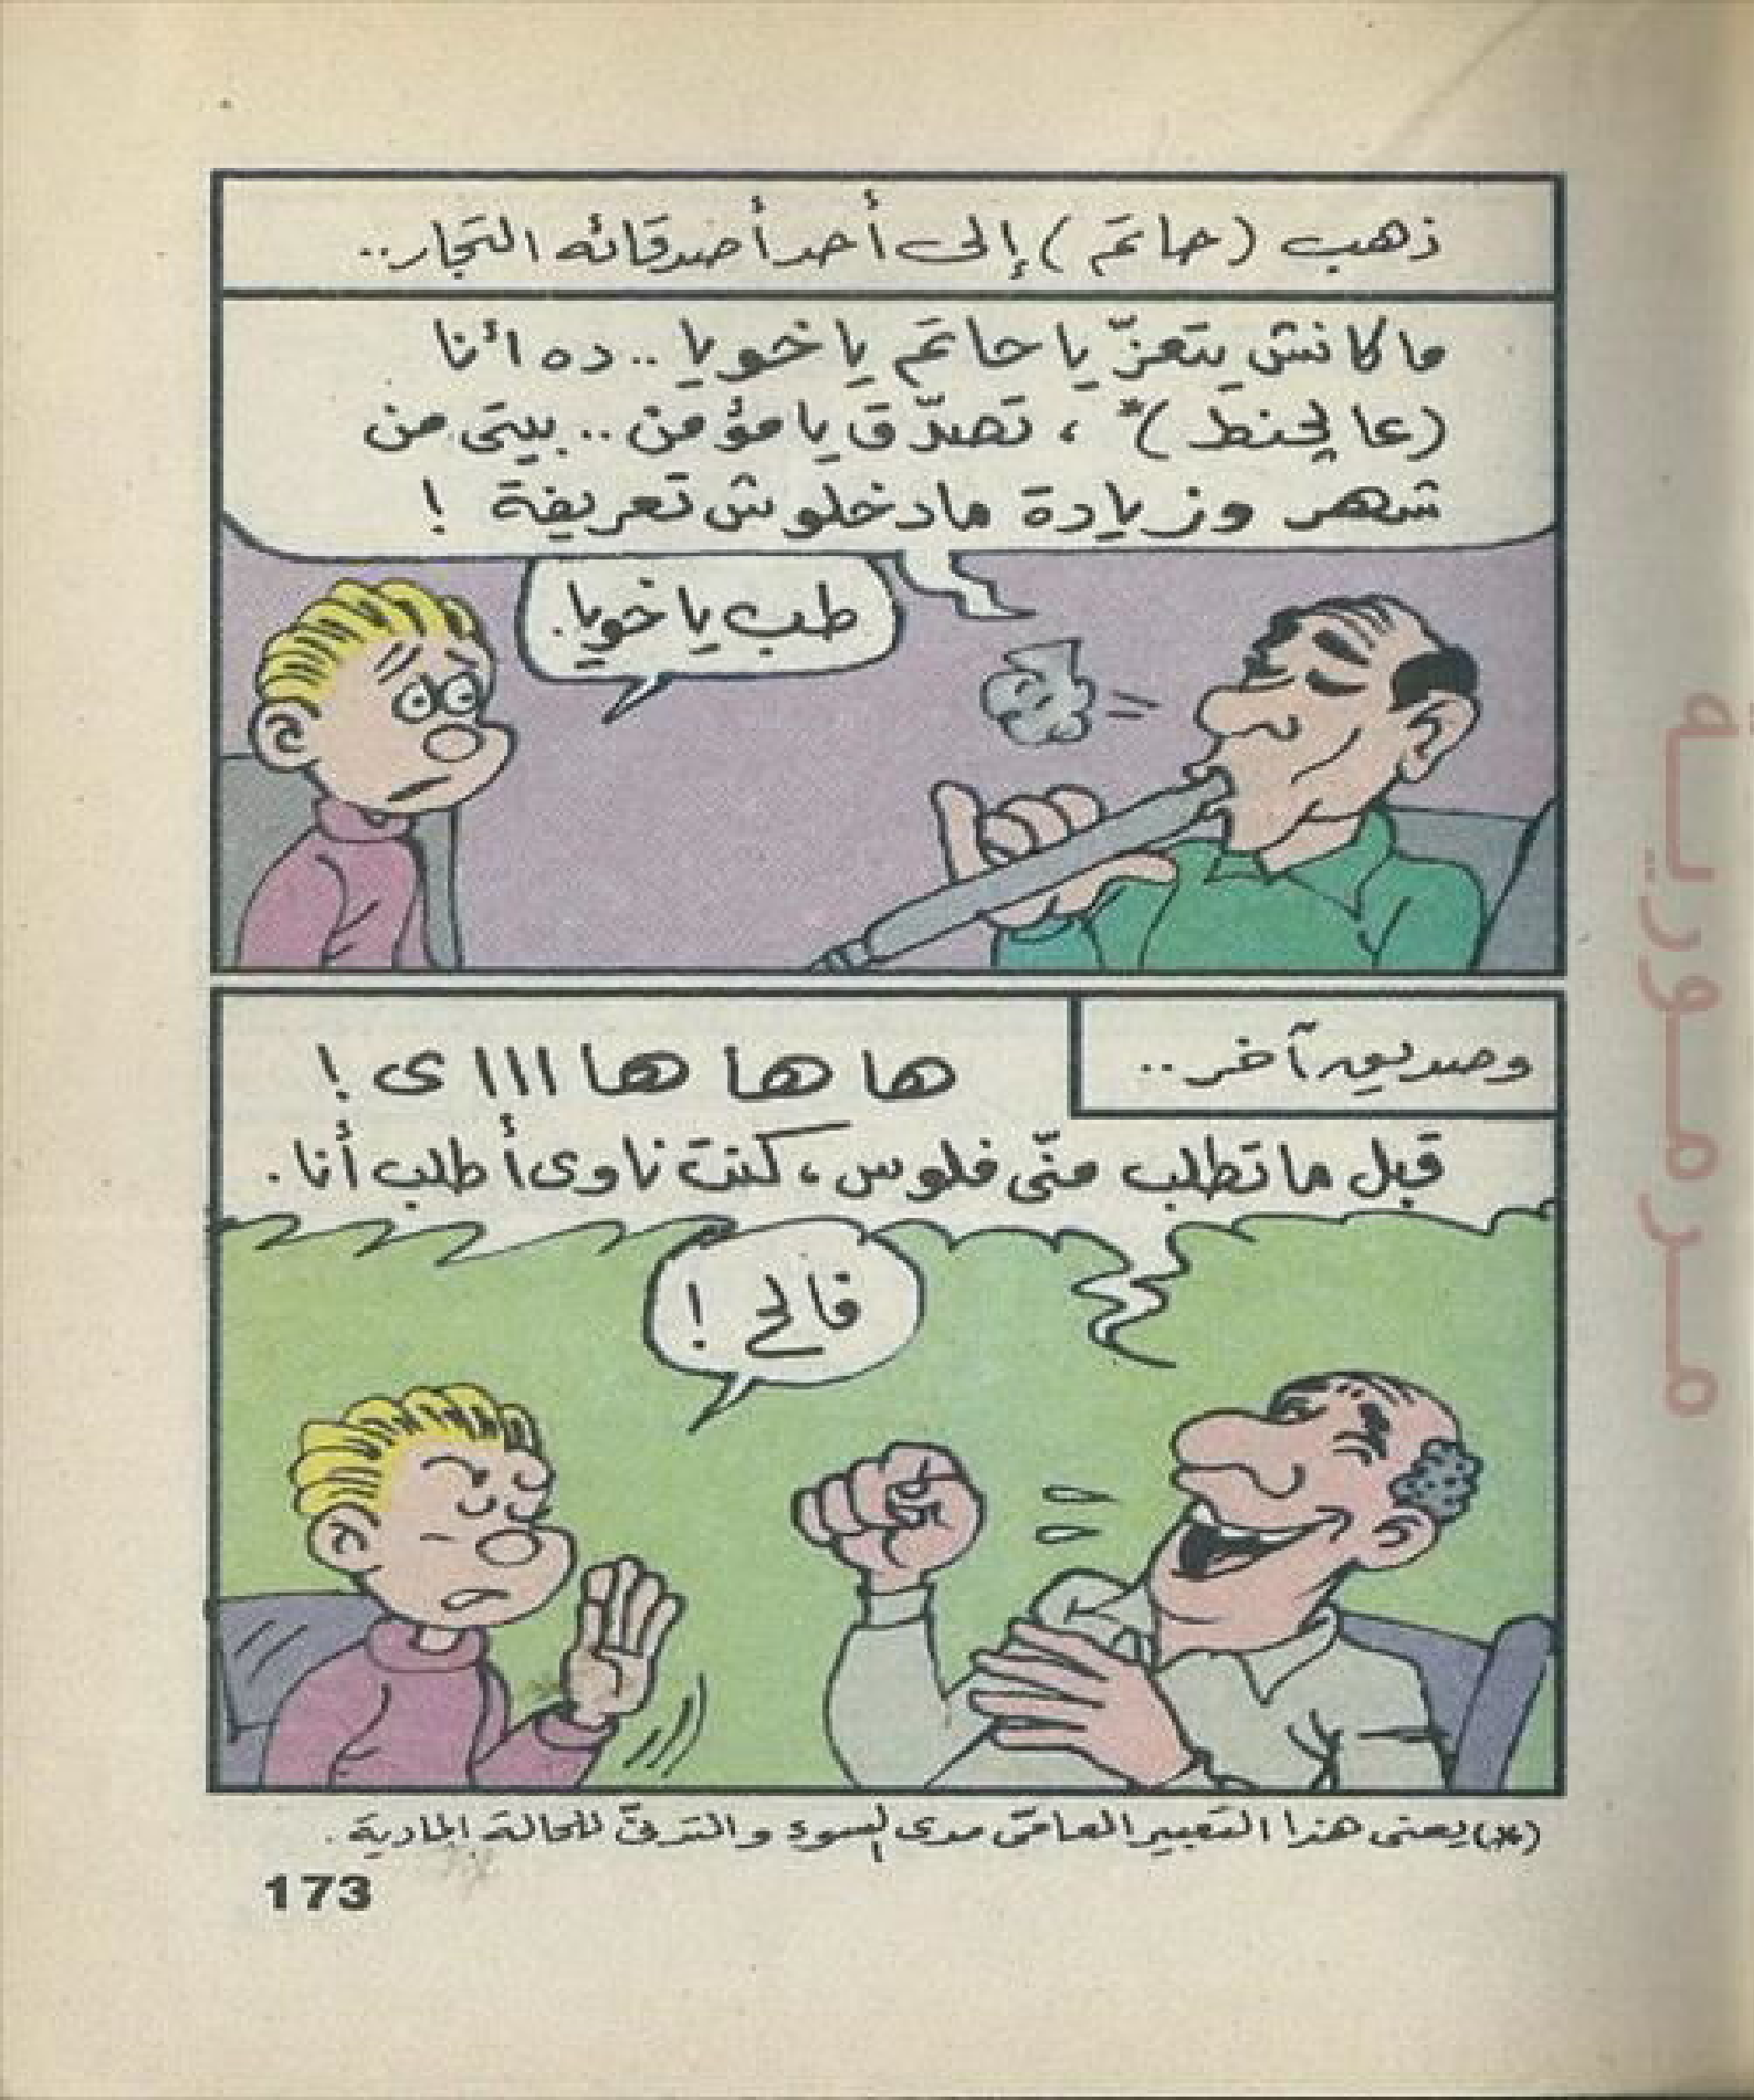 ذهب (حاتم) إلى أحد أصدقائه التجار..
ماكانش يتعزّ يا حاتم ياخويا .. ده أنا
(عالجنط)*، تصدّق يا مؤمن .. بيتى من
شهر وزيادة مادخلوش تعريفة !
طب ياخويا.
وصديق آخر..
ها ها هاااى !
قبل ما تطلب منّى فلوس، كنت ناوى أطلب أنا.
فالح !
(*) يعنى هذا التعبير العامّى مدى السوء والتدنّى للحالة المادية.
173
مرمورية